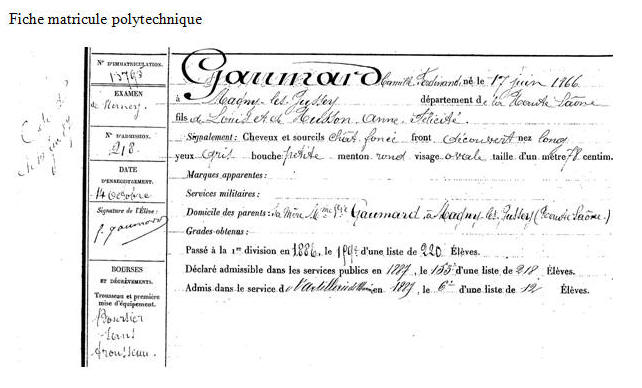 Fiche matricule polytechnique
N° D'IMMATRICULATION.
EXAMEN
de Nancy
N° D'ADMISSION.
218
DATE
D'ENREGISTREMENT.
14 octobre
Signature de l'Élève :
BOURSES
ET DÉGRÈVEMENTS.
Trousseau et première
mise d'équipement.
Boursier
avec
trousseau
Gaumard Camille Ferdinand né le 17 juin 1866
à Magny-les-Jussey département de la Haute Saône
fils de Louis et de Husson Anne Félicité
Signalement : Cheveux et sourcils chât. foncé front découvert nez long
yeux gris bouche petite menton rond visage ovale taille d'un mètre 78 centim.
Marques apparentes :
Services militaires :
Domicile des parents : sa Mère Mme Vve Gaumard à Magny-les-Jussey (Haute Saône.)
Grades obtenus :
Passé à la 1re division en 1886, le d'une liste de 220 Élèves.
Déclaré admissible dans les services publics en 1887, le 155e d'une liste de 218 Élèves.
Admis dans le service de l'Artillerie de Marine, en 1887, le 6e d'une liste de 12 Élèves.